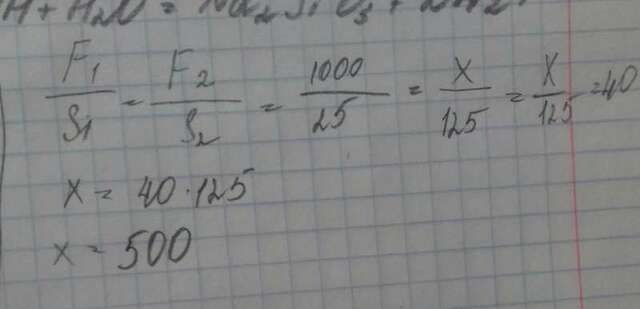 H + H₂O = Na₂SiO₃ + 2H₂
F₁/S₁ = F₂/S₂ = 1000/25 = x/125 = x/125 = 40
x = 40 · 125
x = 500